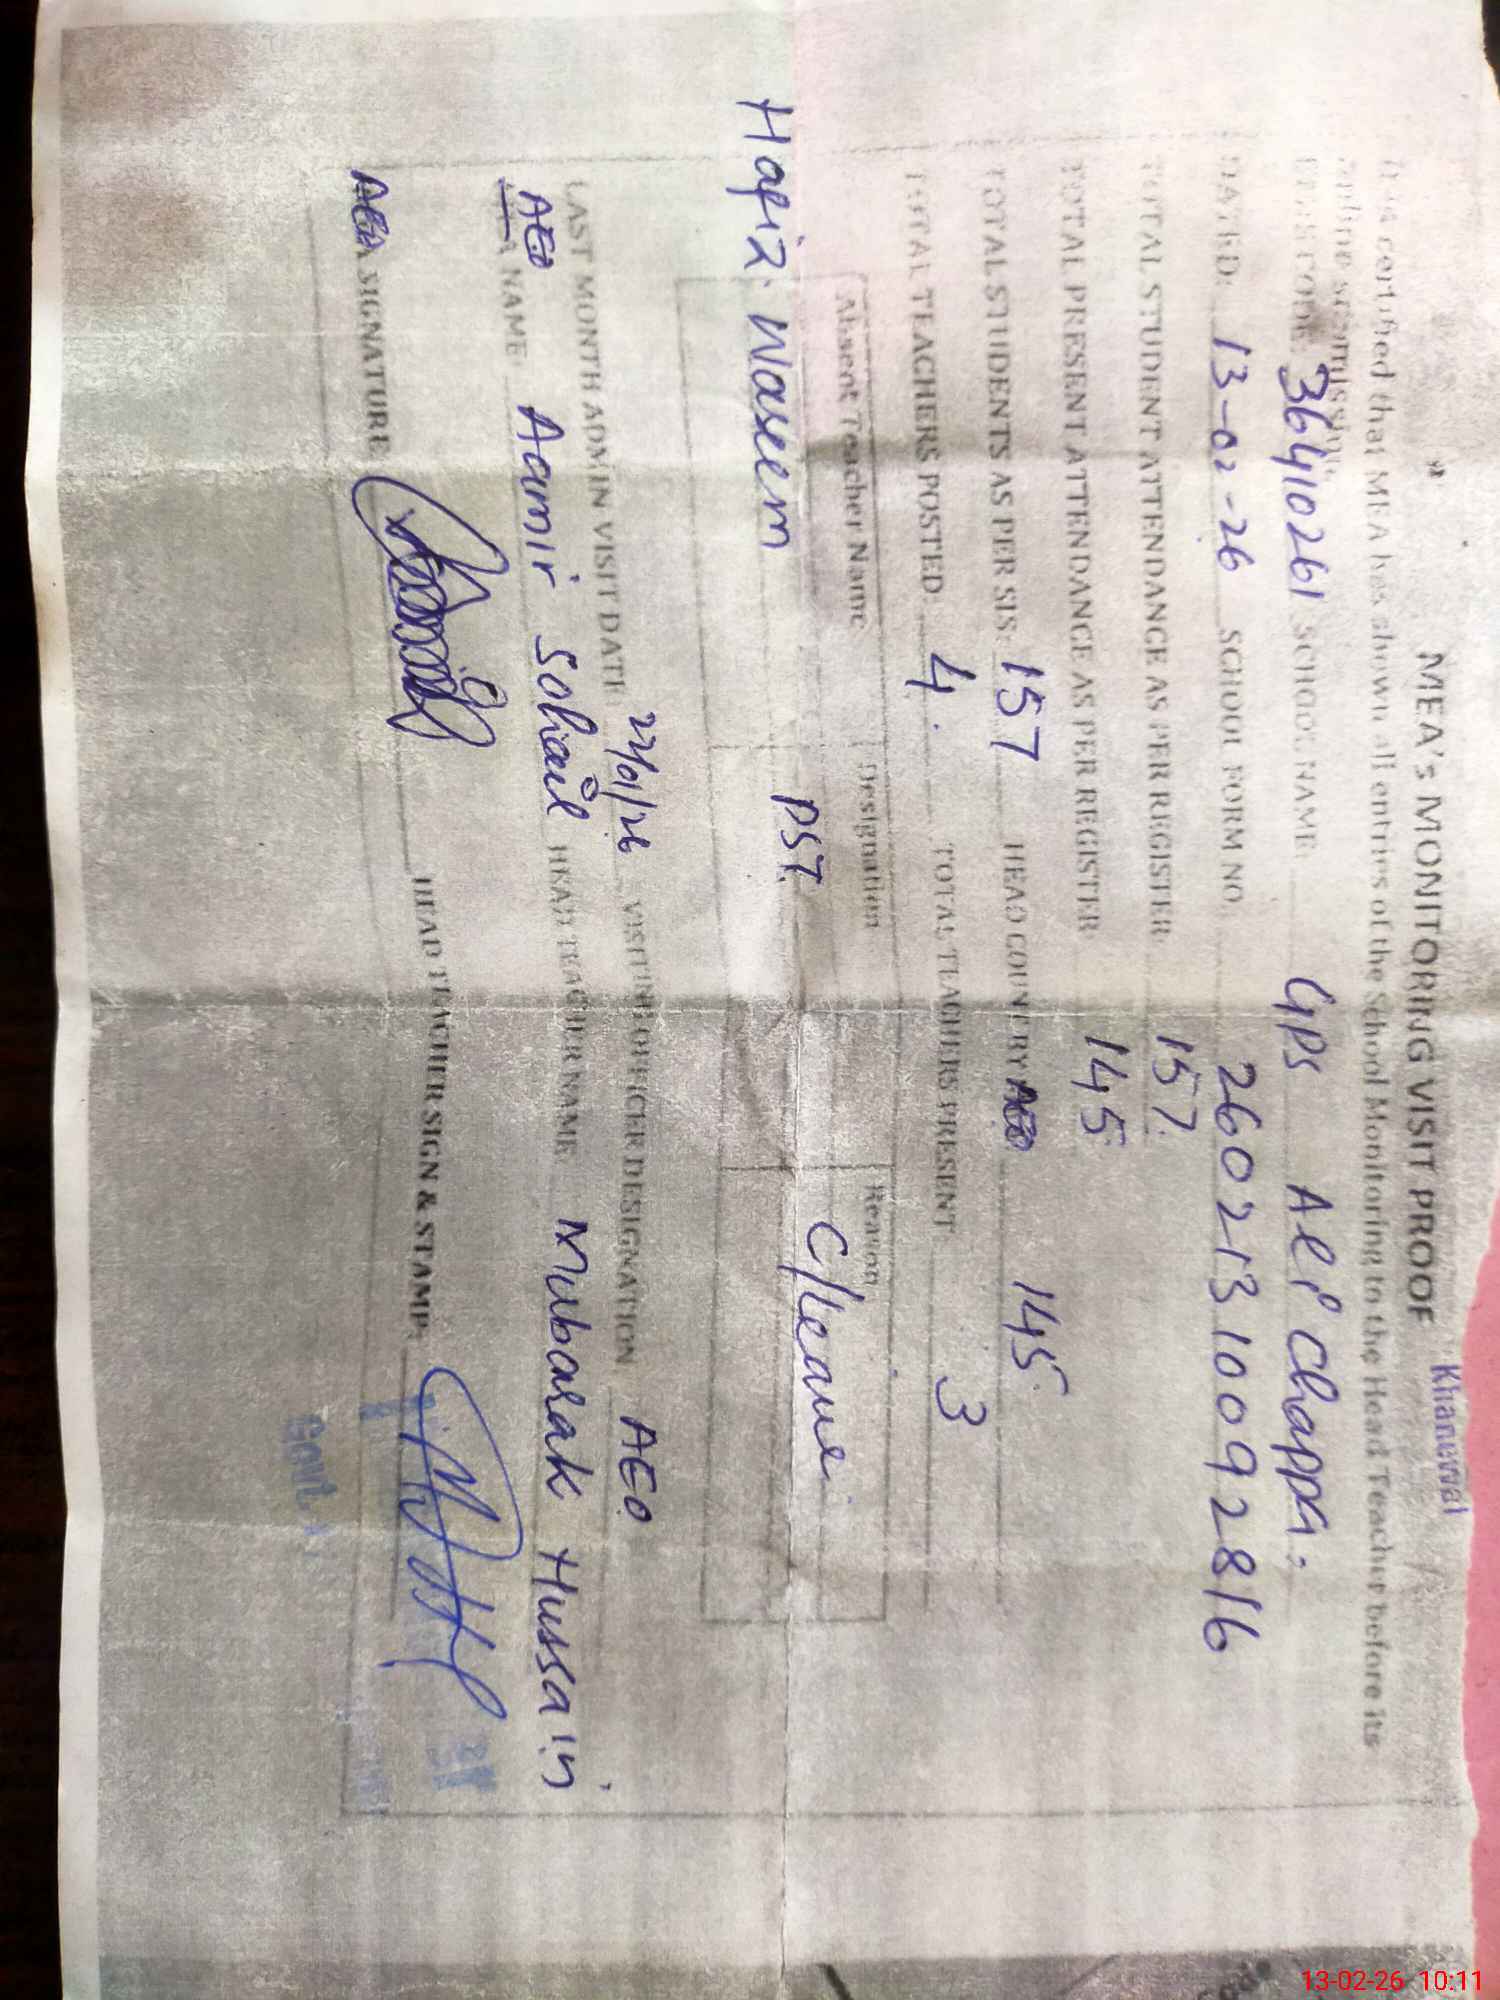 Khanewal
MEA's MONITORING VISIT PROOF
It is certified that MEA has shown all entries of the School Monitoring to the Head Teacher before its
online submission.
EMIS CODE: 36410261 SCHOOL NAME: GPS Ali Chappa.
DATED: 13-02-26 SCHOOL FORM NO: 26021310092816
TOTAL STUDENT ATTENDANCE AS PER REGISTER: 157.
TOTAL PRESENT ATTENDANCE AS PER REGISTER: 145
TOTAL STUDENTS AS PER SIS: 157 HEAD COUNT BY AEO 145
TOTAL TEACHERS POSTED: 4. TOTAL TEACHERS PRESENT 3
Absent Teacher Name Designation Reason
Hafiz Waseem PST. C/Leave
LAST MONTH ADMIN VISIT DATE: 22/01/26 VISITING OFFICER DESIGNATION AEO
AEO NAME: Aamir Sohail HEAD TEACHER NAME: Mubarak Hussain
AEO SIGNATURE HEAD TEACHER SIGN & STAMP:
Govt.
Code
13-02-26 10:11